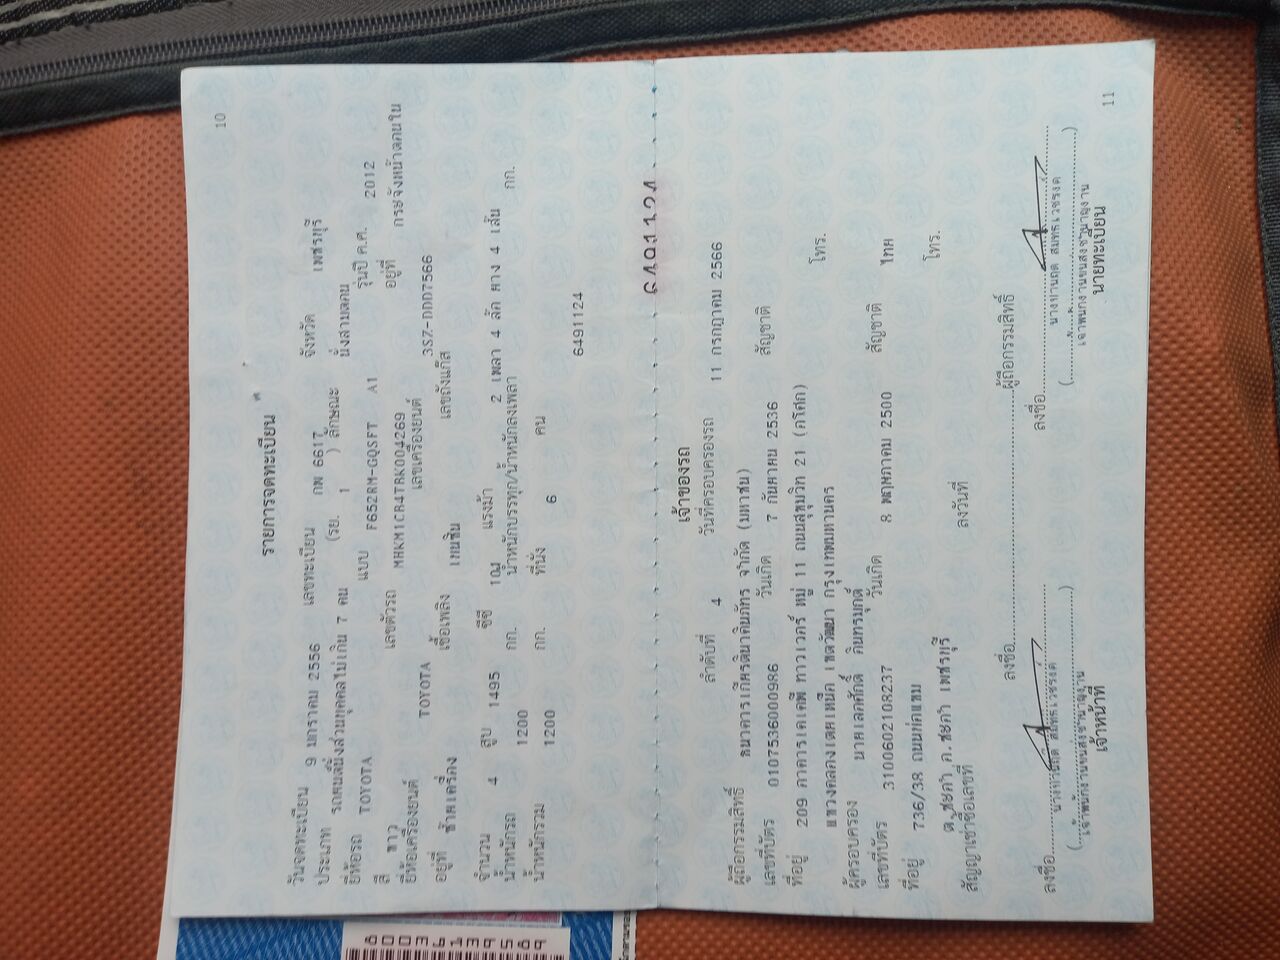 10
รายการจดทะเบียน
วันจดทะเบียน 9 มกราคม 2556 เลขทะเบียน กพ 6617 จังหวัด เพชรบุรี
ประเภท รถยนต์นั่งส่วนบุคคลไม่เกิน 7 คน (รย. 1 ) ลักษณะ นั่งสามตอน
ยี่ห้อรถ TOYOTA แบบ F652RM-GQSFT A1 รุ่นปี ค.ศ. 2012
สี ขาว เลขตัวรถ MHKM1CB4TBK004269 อยู่ที่ กระจังหน้าตอนใน
ยี่ห้อเครื่องยนต์ TOYOTA เลขเครื่องยนต์ 3SZ-DDD7566
อยู่ที่ ซ้ายเครื่อง เชื้อเพลิง เบนซิน เลขถังแก๊ส
จำนวน 4 สูบ 1495 ซีซี 104 แรงม้า 2 เพลา 4 ล้อ ยาง 4 เส้น
น้ำหนักรถ 1200 กก. น้ำหนักบรรทุก/น้ำหนักลงเพลา กก.
น้ำหนักรวม 1200 กก. ที่นั่ง 6 คน
6491124
6491124
เจ้าของรถ
ลำดับที่ 4 วันที่ครอบครองรถ 11 กรกฎาคม 2566
ผู้ถือกรรมสิทธิ์ ธนาคารเกียรตินาคินภัทร จำกัด (มหาชน)
เลขที่บัตร 0107536000986 วันเกิด 7 กันยายน 2536 สัญชาติ
ที่อยู่ 209 อาคารเคเคพี ทาวเวอร์ หมู่ 11 ถนนสุขุมวิท 21 (อโศก)
แขวงคลองเตยเหนือ เขตวัฒนา กรุงเทพมหานคร โทร.
ผู้ครอบครอง นายเลอศักดิ์ อินทรมกดิ์
เลขที่บัตร 3100602108237 วันเกิด 8 พฤษภาคม 2500 สัญชาติ ไทย
ที่อยู่ 736/38 ถนนก่อแขม
ต.ชะอำ อ.ชะอำ เพชรบุรี โทร.
สัญญาเช่าซื้อเลขที่ ลงวันที่
ลงชื่อ ผู้ถือกรรมสิทธิ์
ลงชื่อ ลงชื่อ
เจ้าพนักงานขนส่งชำนาญงาน เจ้าพนักงานขนส่งชำนาญงาน
เจ้าหน้าที่ นายทะเบียน
11